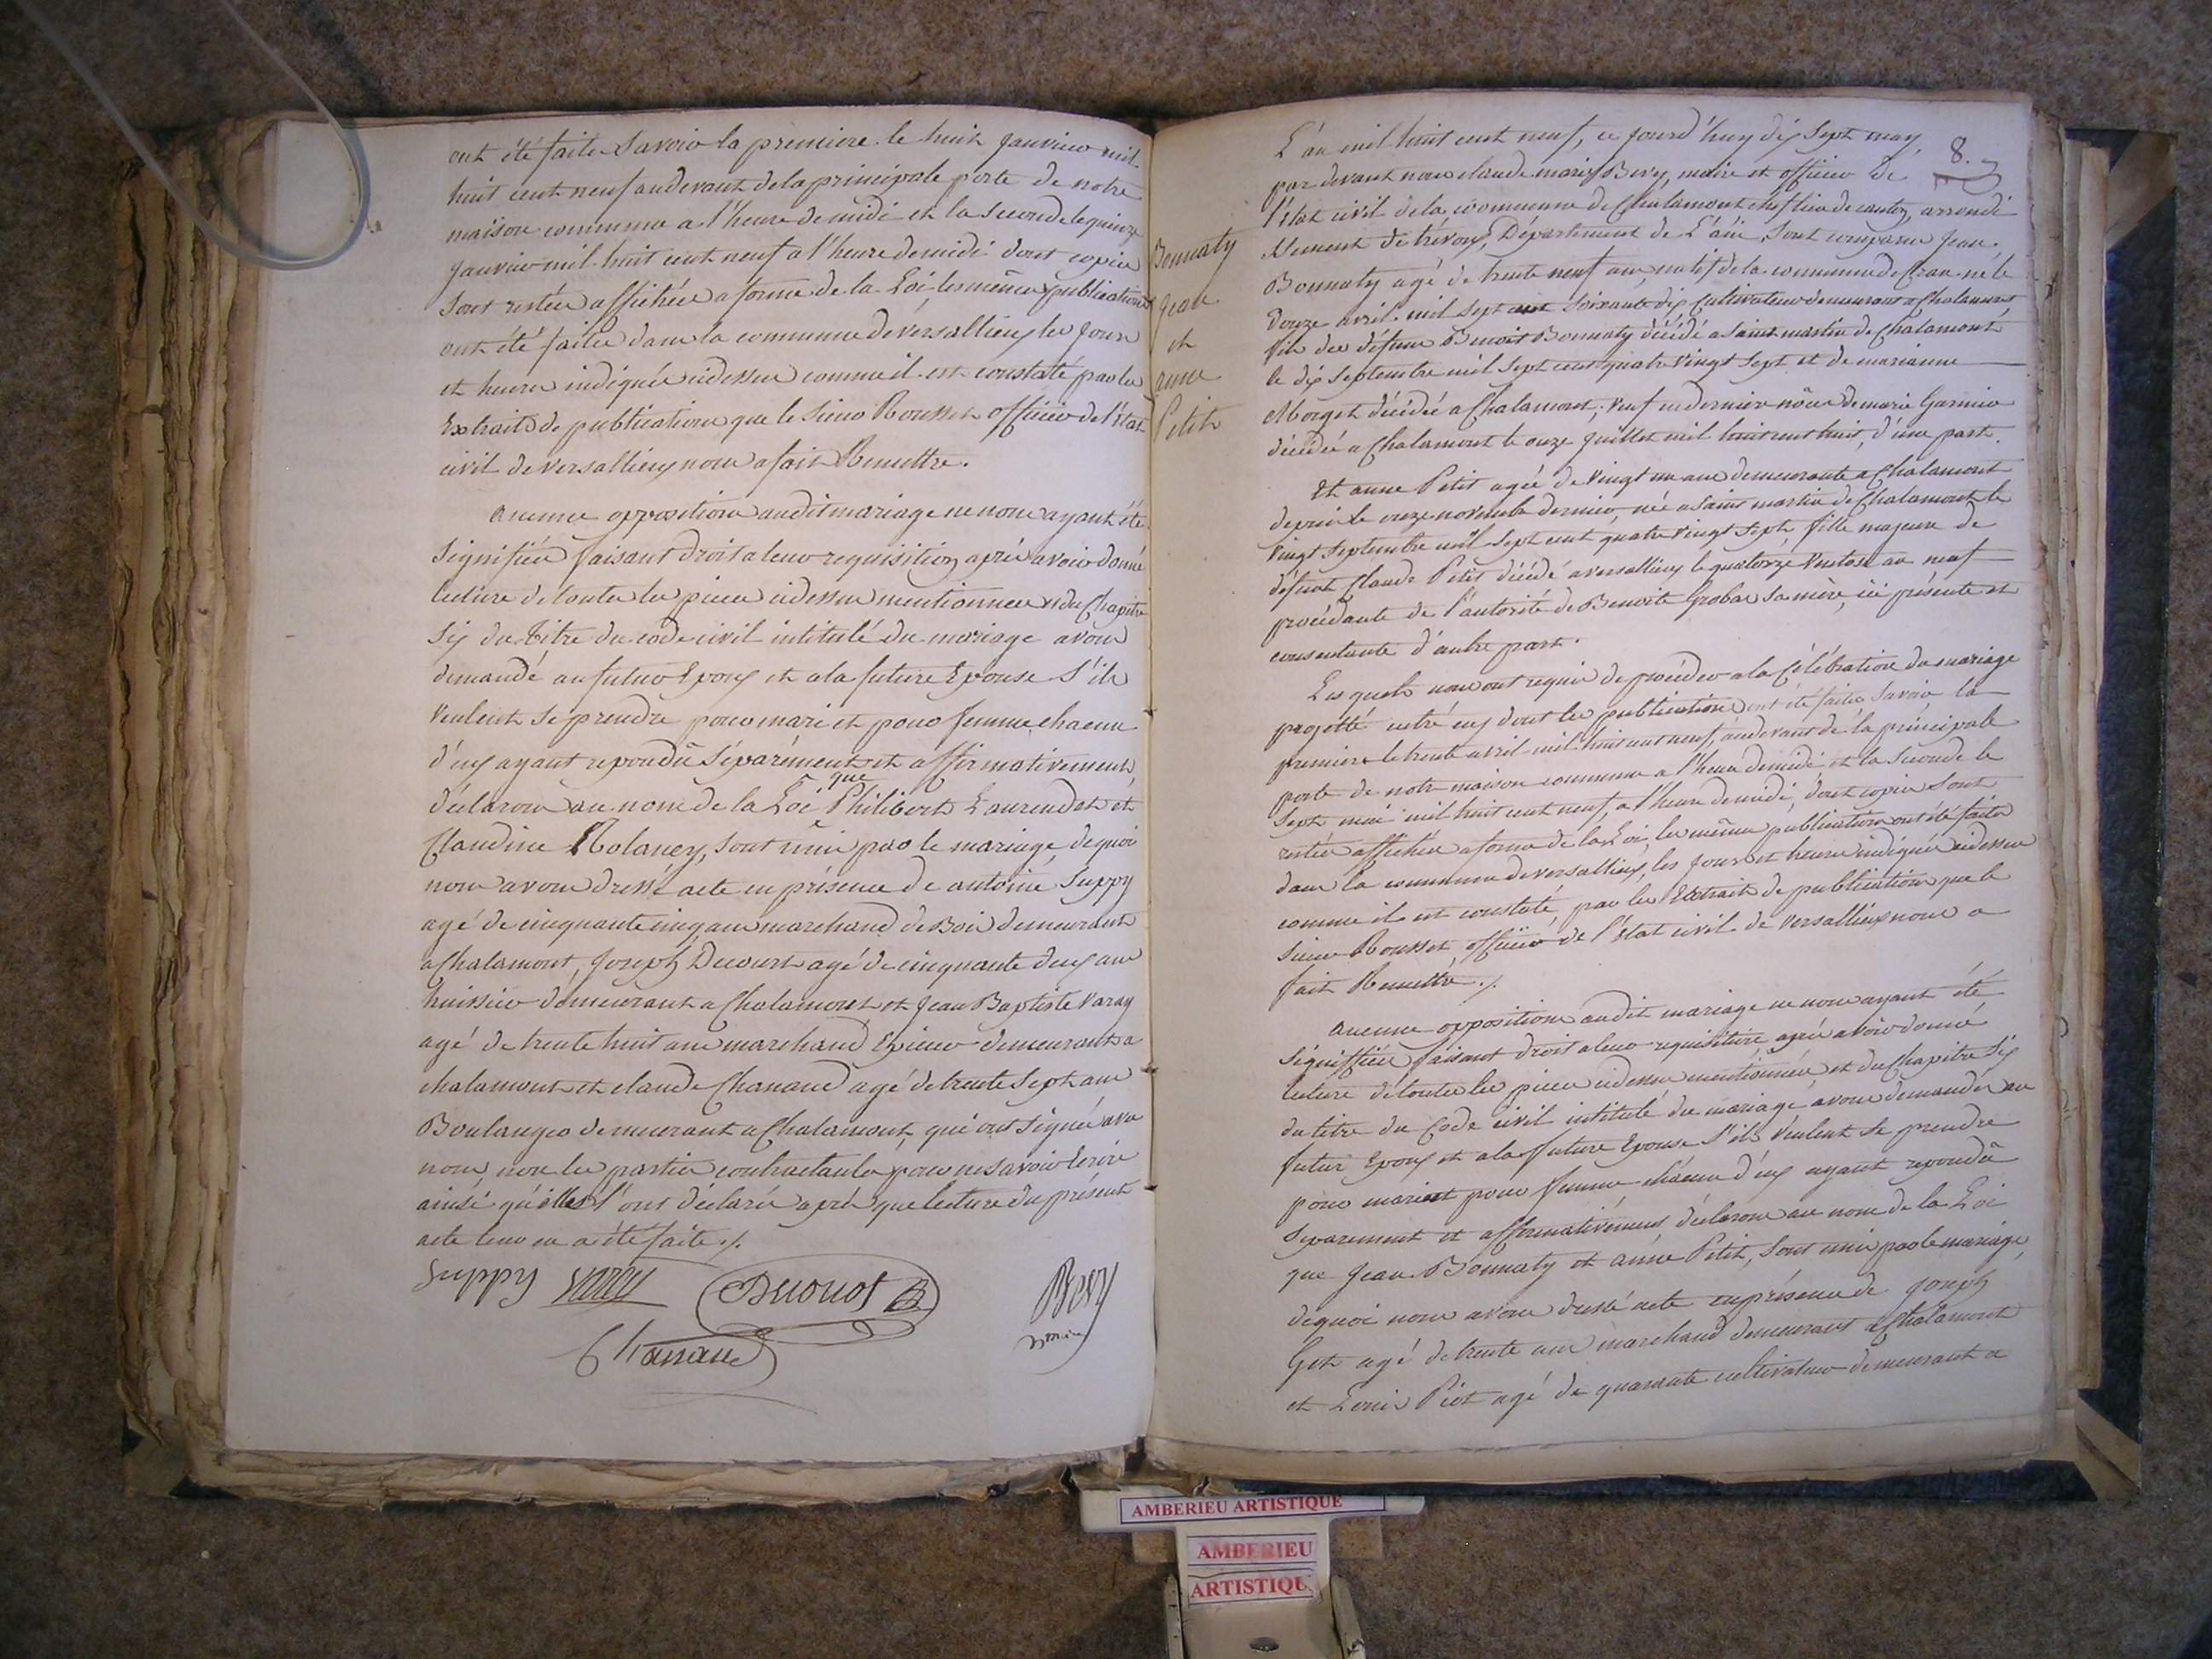 ont été faites Savoir la premiere le huit janvier mil
huit cent neuf audevant de la principale porte de notre
maison commune a l'heure de midi et la seconde le quinze
janvier mil huit cent neuf a l'heure de midi dont copies
sont restées affichées a forme de la Loi, les mêmes publications
ont été faites dans la commune de versallieux les jours
et heures indiquées cidessus comme il est constaté par les
Extraits de publications que le sieur Rousset officier de l'état
civil de versallieux nous a fait Remettre.
aucune opposition audit mariage ne nous ayant été
signifiée faisant droit a leur requisition après avoir donné
lecture de toutes les pieces cidessus mentionnées et du Chapitre
Six du titre du code civil intitulé du mariage avons
demandé au futur Epoux et a la future Epouse S'ils
veulent se prendre pour mari et pour femme, chacun
d'eux ayant repondu séparément et affirmativement,
déclarons au nom de la Loi que Philibert Laurendot et
Claudine Rolaney, sont unis par le mariage, de quoi
nous avons dressé acte en présence de antoine Suppy
agé de cinquante cinq ans marchand de Bois demeurant
a Chalamont, Joseph Decourt agé de cinquante deux ans
huissier demeurant a Chalamont et Jean Baptiste Varay
agé de trente huit ans marchand Epicier demeurant a
chalamont et claude Chanaud agé de trente sept ans
Boulanger demeurant a Chalamont, qui ont signé avec
nous, non les parties contractantes pour ne savoir Ecrire
ainsi qu'elles l'ont déclaré après que lecture du présent
acte leur en a été faite ./.
Suppy Varay Decourt Bevy
Chanaud maire
8.
Bonnaty
jean
et
anne
Petit
L'an mil huit cent neuf, ce jourd'huy dix Sept may,
par devant nous claude marie Bevy, maire et officier de
l'état civil de la commune de Chalamont chef lieu de canton, arrondi
ssement de trévoux, Département de L'ain, Sont comparu Jean
Bonnaty agé de trente neuf ans, natif de la commune de Cran né le
douze avril mil sept cent soixante dix Cultivateur demeurant a Chalamont
fils des défunts Benoit Bonnaty décédé a Saint martin de Chalamont
le dix septembre mil sept cent quatre vingt sept et de marianne
Morget décédée a Chalamont, veuf en dernier nôces de marie Garnier
décédée a Chalamont le onze juillet mil huit cent huit, d'une part.
Et anne Petit agée de vingt un ans demeurante a Chalamont
depuis le onze novembre dernier, née a Saint martin de Chalamont le
vingt septembre mil sept cent quatre vingt sept, fille majeure de
défunt Claude Petit décédé a versallieux le quatorze ventose an neuf
procédante de l'autorité de Benoite Grobas sa mère, ici présente et
consentante d'autre part.
Les quels nous ont requis de procéder a la Célébration du mariage
projetté entré eux dont les publications ont été faites Savoir la
premiere le trente avril mil huit cent neuf, audevant de la principale
porte de notre maison commune a l'heure de midi et la seconde le
sept mai mil huit cent neuf, a l'heure de midi, dont copies sont
restées affichées a forme de la Loi, les mêmes publications ont été faites
dans la commune de versallieux, les jours et heures indiquées cidessus
comme il est constaté, par les Extraits de publications que le
sieur Rousset, officier de l'état civil de versallieux nous a
fait Remettre ./.
aucune opposition audit mariage ne nous ayant été
Signiffiée faisant droit a leur requisitoire après avoir donné
lecture de toutes les pieces cidessus mentionnées et du Chapitre Six
du titre du Code civil intitulé du mariage avons demandés au
futur Epoux et a la future Epouse S'ils veulent se prendre
pour mari et pour femme chacun d'eux ayant repondu
séparement et affirmativement déclarons au nom de la Loi
que Jean Bonnaty et anne Petit, Sont unis par le mariage,
de quoi nous avons dressé acte en présence de Joseph
Get agé de trente ans marchand demeurant a Chalamont
et Louis Piot agé de quarante cultivateur demeurant a
AMBERIEU ARTISTIQUE
AMBERIEU
ARTISTIQU